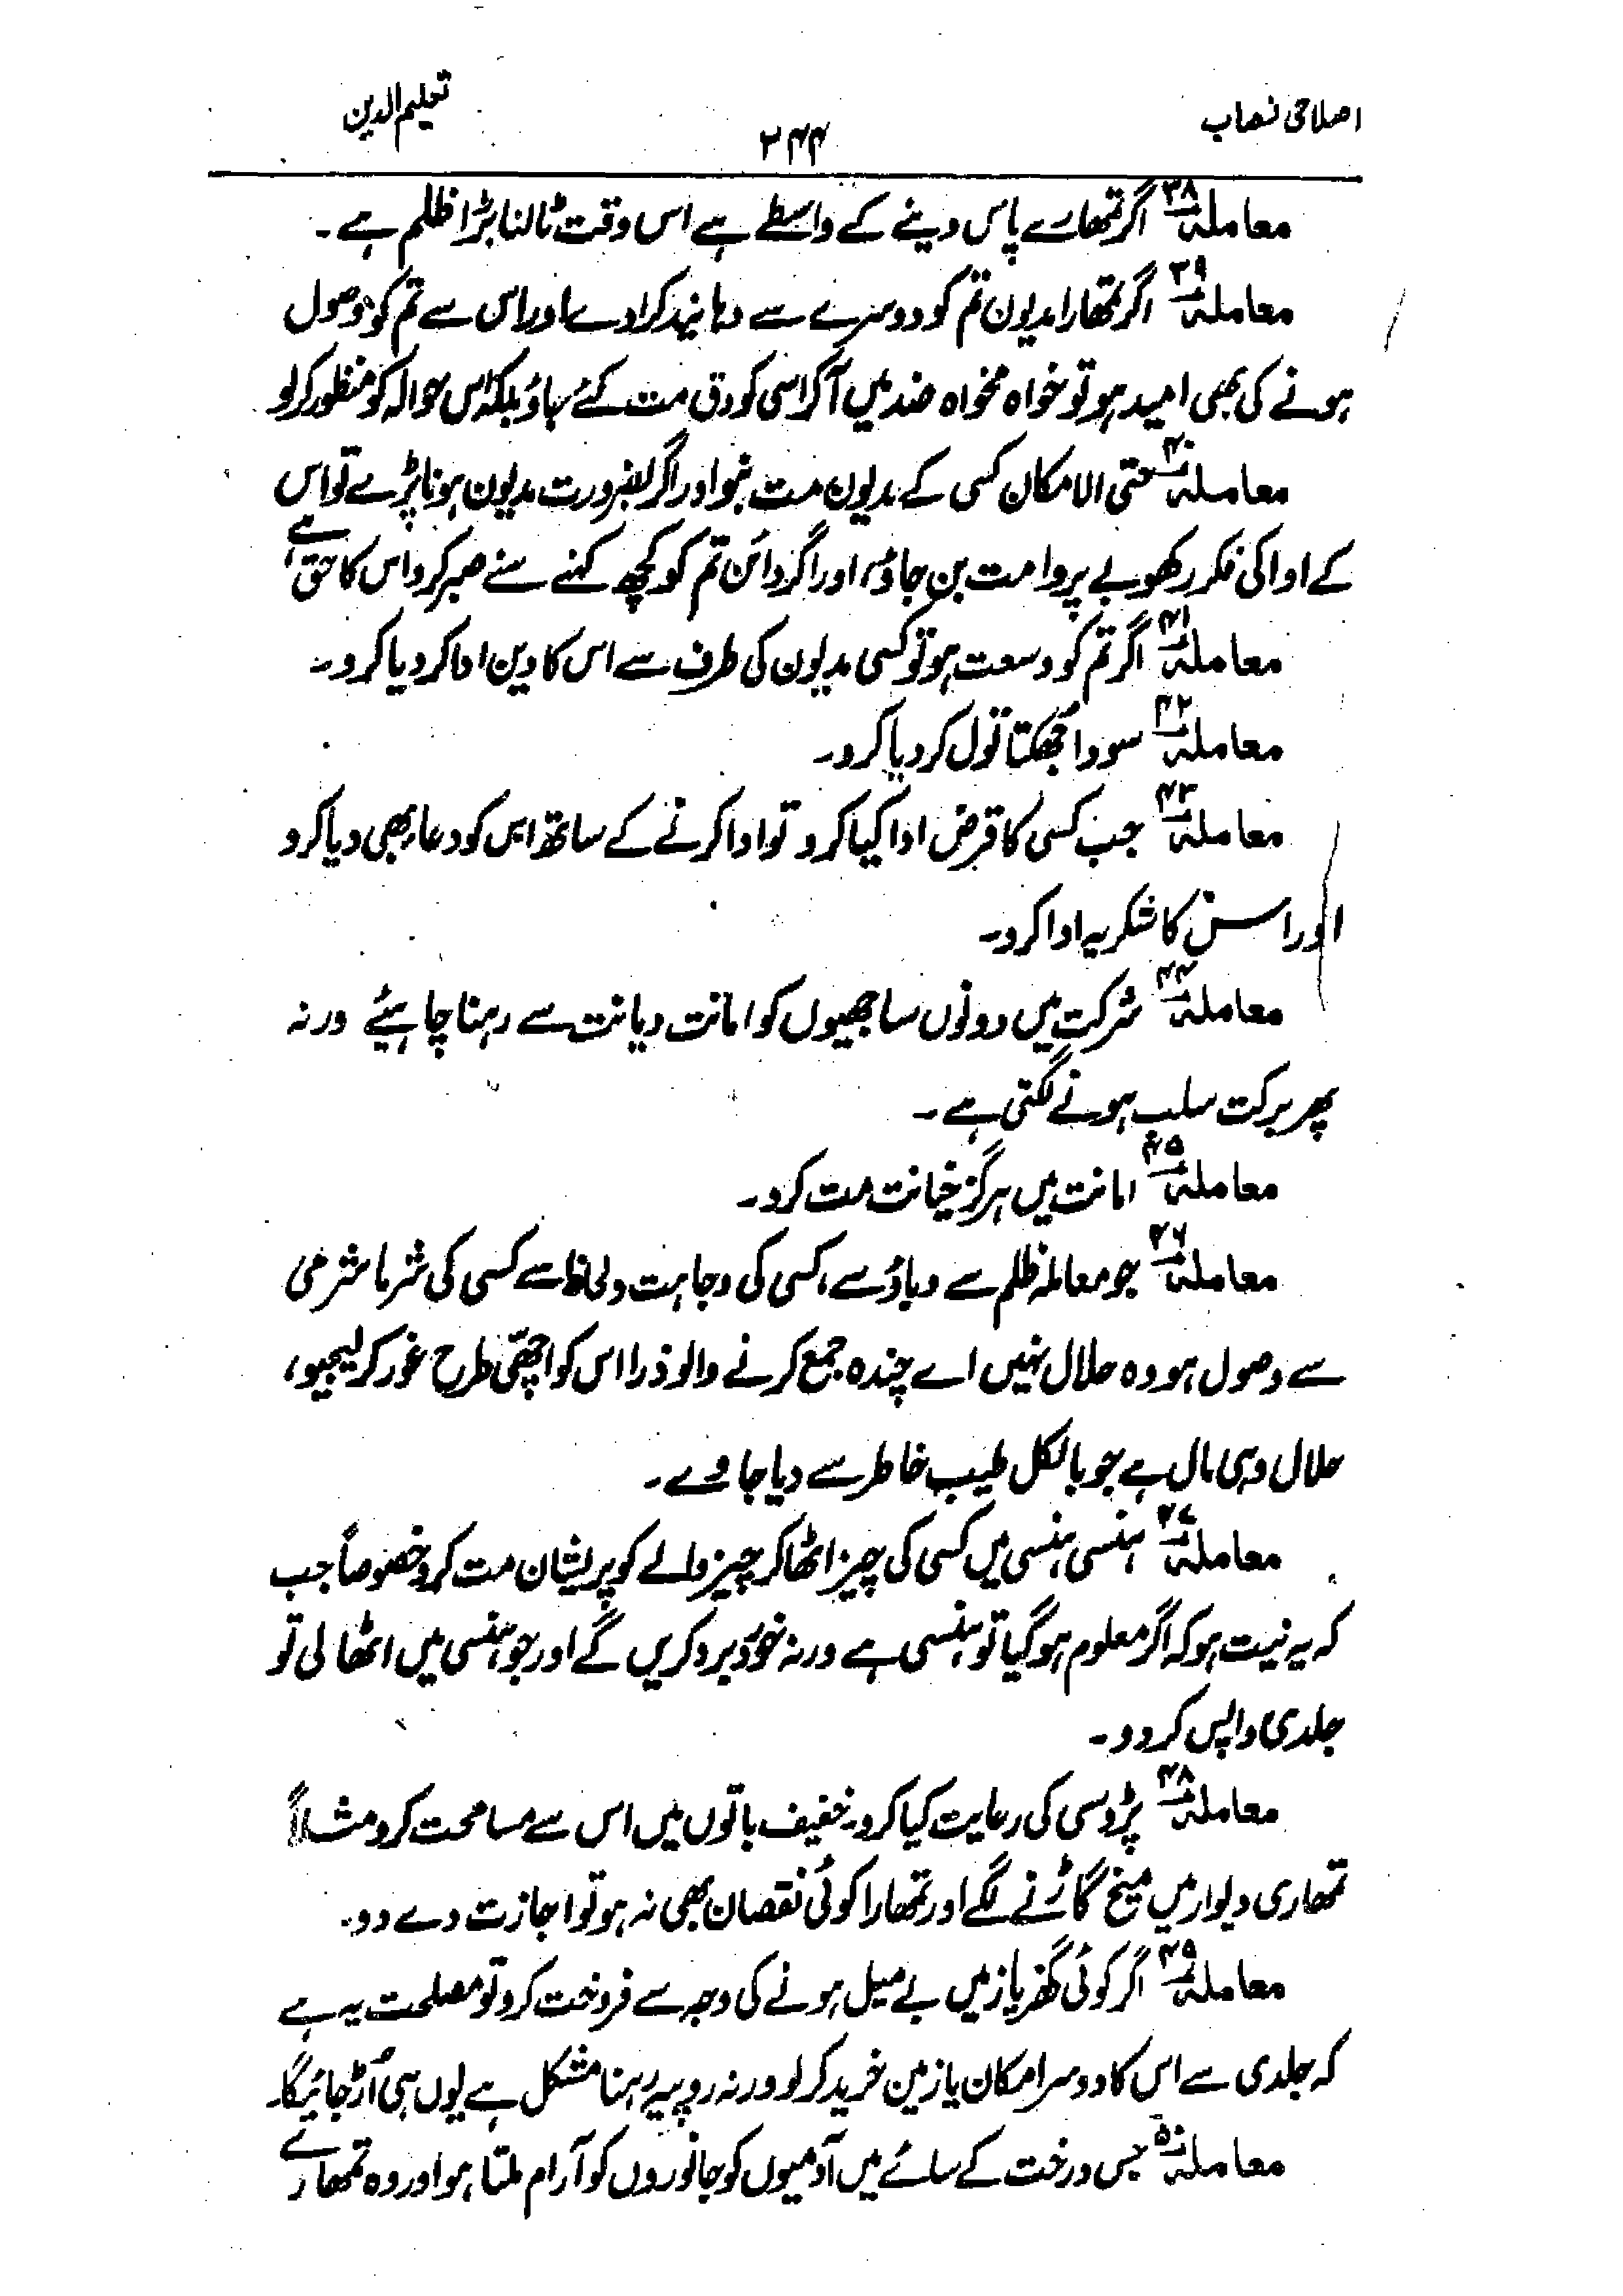 اصلاحی نصاب
۲۴۴
تعلیم الدین
معاملہ ۳۸ اگر تمھارے پاس دینے کے واسطے ہے اس وقت ٹالنا بڑا ظلم ہے۔
معاملہ ۳۹ اگر تمھارا مدیون تم کو دوسرے سے دہانید کرا دے اور اس سے تم کو وصول
ہونے کی بھی امید ہو تو خواہ مخواہ ضد میں آکر اسی کو دق مت کئے جاؤ بلکہ اس حوالہ کو منظور کر لو
معاملہ ۴۰ حتی الامکان کسی کے مدیون مت بنو اور اگر بضرورت مدیون ہونا پڑے تو اس
کے ادا کی فکر رکھو بے پروا مت بن جاؤ، اور اگر دائن تم کو کچھ کہنے سنے صبر کرو اس کا حق ہے
معاملہ ۴۱ اگر تم کو وسعت ہو تو کسی مدیون کی طرف سے اس کا دین ادا کر دیا کرو۔
معاملہ ۴۲ سودا جھکتا تول کر دیا کرو۔
معاملہ ۴۳ جب کسی کا قرض ادا کیا کرو تو ادا کرنے کے ساتھ اس کو دعا بھی دیا کرو
اور اس کا شکریہ ادا کرو۔
معاملہ ۴۴ شرکت میں دونوں ساجھیوں کو امانت دیانت سے رہنا چاہئیے ورنہ
پھر برکت سلب ہونے لگتی ہے۔
معاملہ ۴۵ امانت میں ہرگز خیانت مت کرو۔
معاملہ ۴۶ جو معاملہ ظلم سے دباؤ سے، کسی کی وجاہت ولحاظ سے کسی کی شرما شرمی
سے وصول ہو وہ حلال نہیں اے چندہ جمع کرنے والو ذرا اس کو اچھی طرح غور کر لیجیو،
حلال وہی مال ہے جو بالکل طیب خاطر سے دیا جاوے۔
معاملہ ۴۷ ہنسی ہنسی میں کسی کی چیز اٹھا کر چیز والے کو پریشان مت کرو خصوصاً جب
کہ یہ نیت ہو کہ اگر معلوم ہو گیا تو ہنسی ہے ورنہ خورد برد کریں گے اور جو ہنسی میں اٹھا لی تو
جلدی واپس کر دو۔
معاملہ ۴۸ پڑوسی کی رعایت کیا کرو۔ خفیف باتوں میں اس سے مسامحت کرو مثلاً
تمھاری دیوار میں میخ گاڑنے لگے اور تمھارا کوئی نقصان بھی نہ ہو تو اجازت دے دو۔
معاملہ ۴۹ اگر کوئی گھر یا زمین بے میل ہونے کی وجہ سے فروخت کرو تو مصلحت یہ ہے
کہ جلدی سے اس کا دوسرا مکان یا زمین خرید کر لو ورنہ روپیہ رہنا مشکل ہے یوں ہی اُڑ جائیگا۔
معاملہ ۵۰ جس درخت کے سائے میں آدمیوں کو جانوروں کو آرام ملتا ہو اور وہ تمھارے